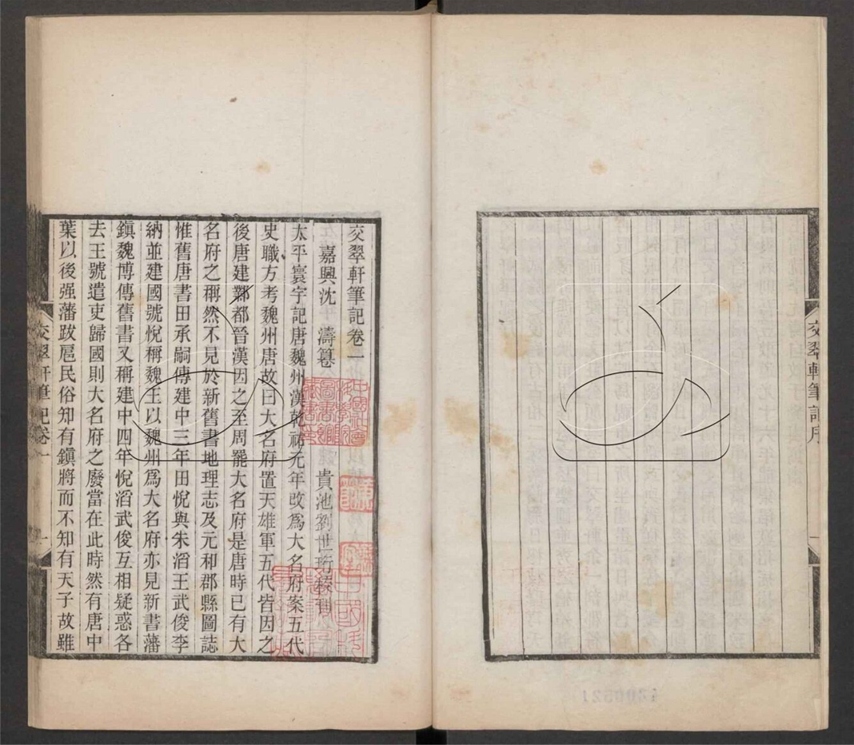 交翠軒筆記序
交翠軒筆記卷一
嘉興沈 濤 纂 貴池劉世珩 校刊
太平寰宇記唐魏州漢乾祐元年改爲大名府案五代
史職方考魏州唐故曰大名府置天雄軍五代皆因之
後唐建鄴都晉漢因之至周罷大名府是唐時已有大
名府之稱然不見於新舊書地理志及元和郡縣圖誌
惟舊唐書田承嗣傳建中三年田悅與朱滔王武俊李
納並建國號悅稱魏王以魏州爲大名府亦見新書藩
鎮魏博傳舊書又稱建中四年悅滔武俊互相疑惑各
去王號遣吏歸國則大名府之廢當在此時然有唐中
葉以後强藩跋扈民俗知有鎮將而不知有天子故雖
交翠軒筆記卷一
一